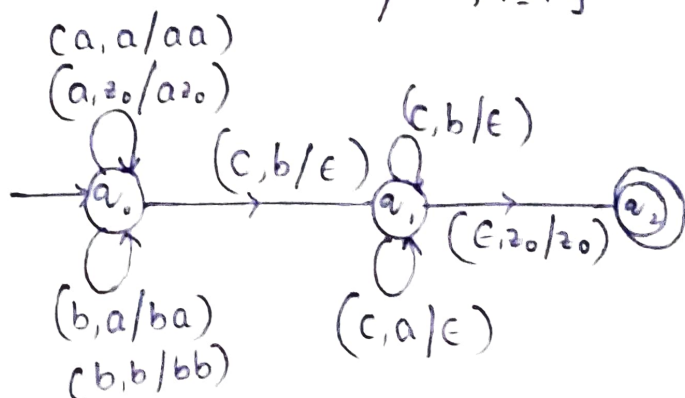 (a, a/aa)
(a, z₀/az₀)
(c, b/ε)
(c, b/ε)
q₀
q₁
q₂
(ε, z₀/z₀)
(b, a/ba)
(b, b/bb)
(c, a/ε)